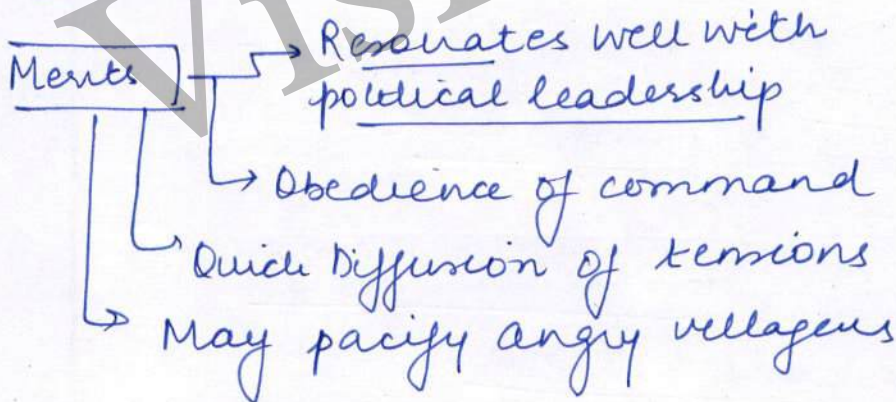 Merits
Resonates well with
political leadership
Obedience of command
Quick Diffusion of tensions
May pacify angry villagers
Vis